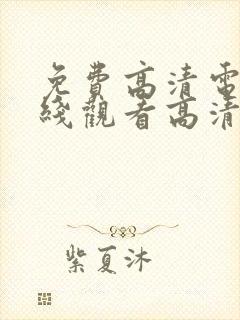 免費高清電
綫觀看高清
紫夏沐